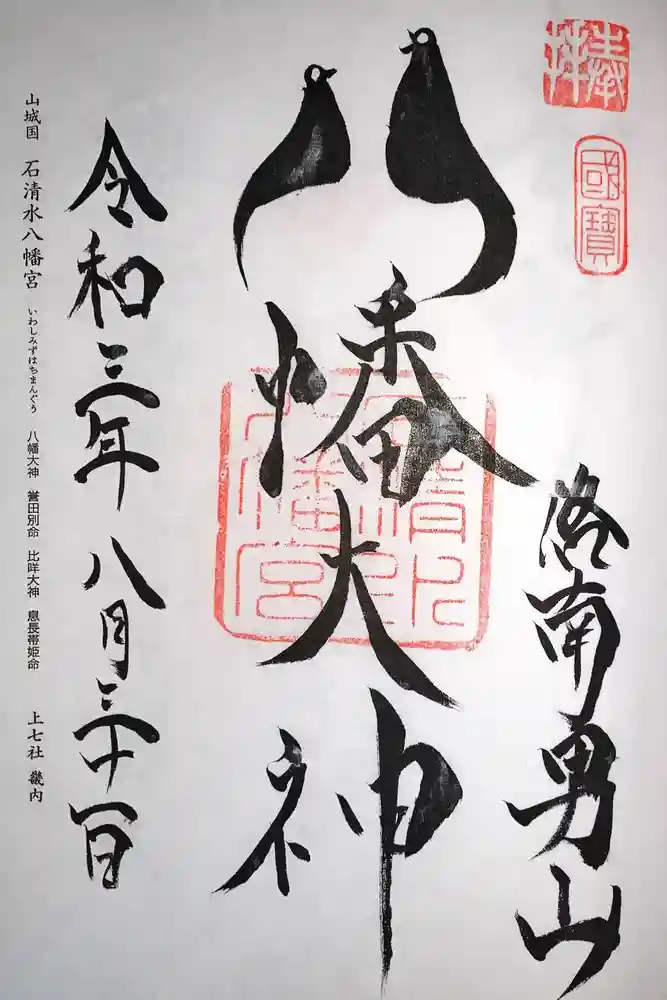 奉拝
國寶
洛南男山
八幡大神
石清水
八幡宮
令和三年八月三十一日
山城国 石清水八幡宮 いわしみずはちまんぐう 八幡大神 誉田別命 比咩大神 息長帯姫命 上七社 畿内